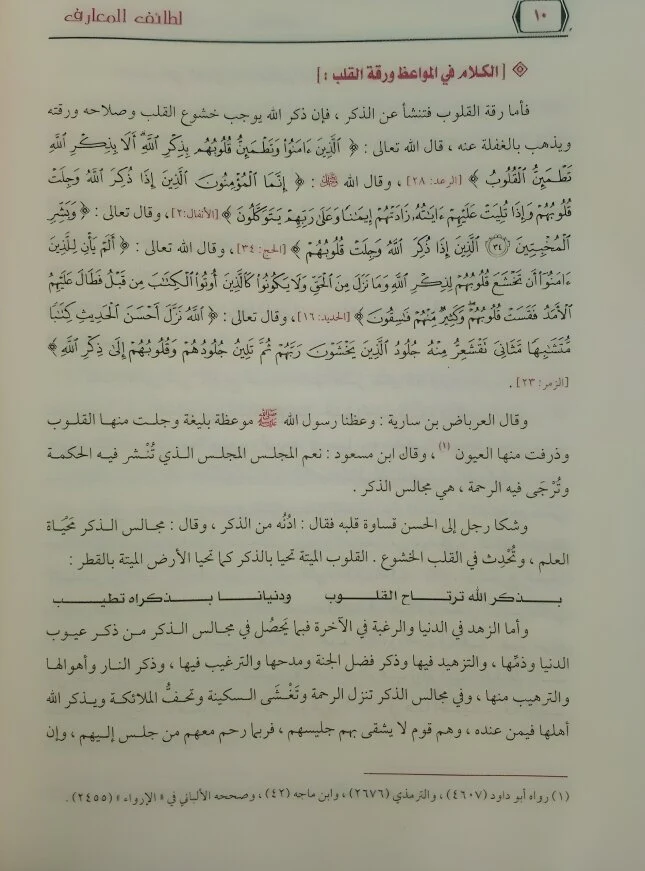 ١٠
لطائف المعارف
[ الكلام في المواعظ ورقة القلب : ]
فأما رقة القلوب فتنشأ عن الذكر ، فإن ذكر الله يوجب خشوع القلب وصلاحه ورقته
ويذهب بالغفلة عنه ، قال الله تعالى : ﴿ الَّذِينَ ءَامَنُوا وَتَطْمَئِنُّ قُلُوبُهُم بِذِكْرِ اللَّهِ أَلَا بِذِكْرِ اللَّهِ
تَطْمَئِنُّ الْقُلُوبُ ﴾ [الرعد: ٢٨] ، وقال الله ﷻ : ﴿ إِنَّمَا الْمُؤْمِنُونَ الَّذِينَ إِذَا ذُكِرَ اللَّهُ وَجِلَتْ
قُلُوبُهُمْ وَإِذَا تُلِيَتْ عَلَيْهِمْ ءَايَاتُهُ زَادَتْهُمْ إِيمَانًا وَعَلَى رَبِّهِمْ يَتَوَكَّلُونَ ﴾ [الأنفال:٢] ، وقال تعالى : ﴿ وَبَشِّرِ
الْمُخْبِتِينَ ﴿٣٤﴾ الَّذِينَ إِذَا ذُكِرَ اللَّهُ وَجِلَتْ قُلُوبُهُمْ ﴾ [الحج: ٣٤] ، وقال الله تعالى : ﴿ أَلَمْ يَأْنِ لِلَّذِينَ
ءَامَنُوا أَن تَخْشَعَ قُلُوبُهُمْ لِذِكْرِ اللَّهِ وَمَا نَزَلَ مِنَ الْحَقِّ وَلَا يَكُونُوا كَالَّذِينَ أُوتُوا الْكِتَابَ مِن قَبْلُ فَطَالَ عَلَيْهِمُ
الْأَمَدُ فَقَسَتْ قُلُوبُهُمْ وَكَثِيرٌ مِنْهُمْ فَاسِقُونَ ﴾ [الحديد: ١٦] ، وقال تعالى : ﴿ اللَّهُ نَزَّلَ أَحْسَنَ الْحَدِيثِ كِتَابًا
مُّتَشَابِهًا مَّثَانِيَ تَقْشَعِرُّ مِنْهُ جُلُودُ الَّذِينَ يَخْشَوْنَ رَبَّهُمْ ثُمَّ تَلِينُ جُلُودُهُمْ وَقُلُوبُهُمْ إِلَى ذِكْرِ اللَّهِ ﴾
[الزمر: ٢٣] .
وقال العرباض بن سارية : وعظنا رسول الله ﷺ موعظة بليغة وجلت منها القلوب
وذرفت منها العيون (١) ، وقال ابن مسعود : نعم المجلس المجلس الذي تُنْشر فيه الحكمة
وتُرْجَى فيه الرحمة ، هي مجالس الذكر .
وشكا رجل إلى الحسن قساوة قلبه فقال : ادْنُه من الذكر ، وقال : مجالس الذكر مَحْيَاة
العلم ، وتُحْدِث في القلب الخشوع . القلوب الميتة تحيا بالذكر كما تحيا الأرض الميتة بالقطر :
بـذكر الله ترتـاح القلـوب ودنيانـا بـذكراه تطيـب
وأما الزهد في الدنيا والرغبة في الآخرة فبما يَحصُل في مجالس الذكر من ذكر عيوب
الدنيا وذمِّها ، والتزهيد فيها وذكر فضل الجنة ومدحها والترغيب فيها ، وذكر النار وأهوالها
والترهيب منها ، وفي مجالس الذكر تنزل الرحمة وتَغْشَى السكينة وتحفُّ الملائكة ويذكر الله
أهلها فيمن عنده ، وهم قوم لا يشقى بهم جليسهم ، فربما رحم معهم من جلس إليهم ، وإن
(١) رواه أبو داود (٤٦٠٧) ، والترمذي (٢٦٧٦) ، وابن ماجه (٤٢) ، وصححه الألباني في « الإرواء » (٢٤٥٥) .